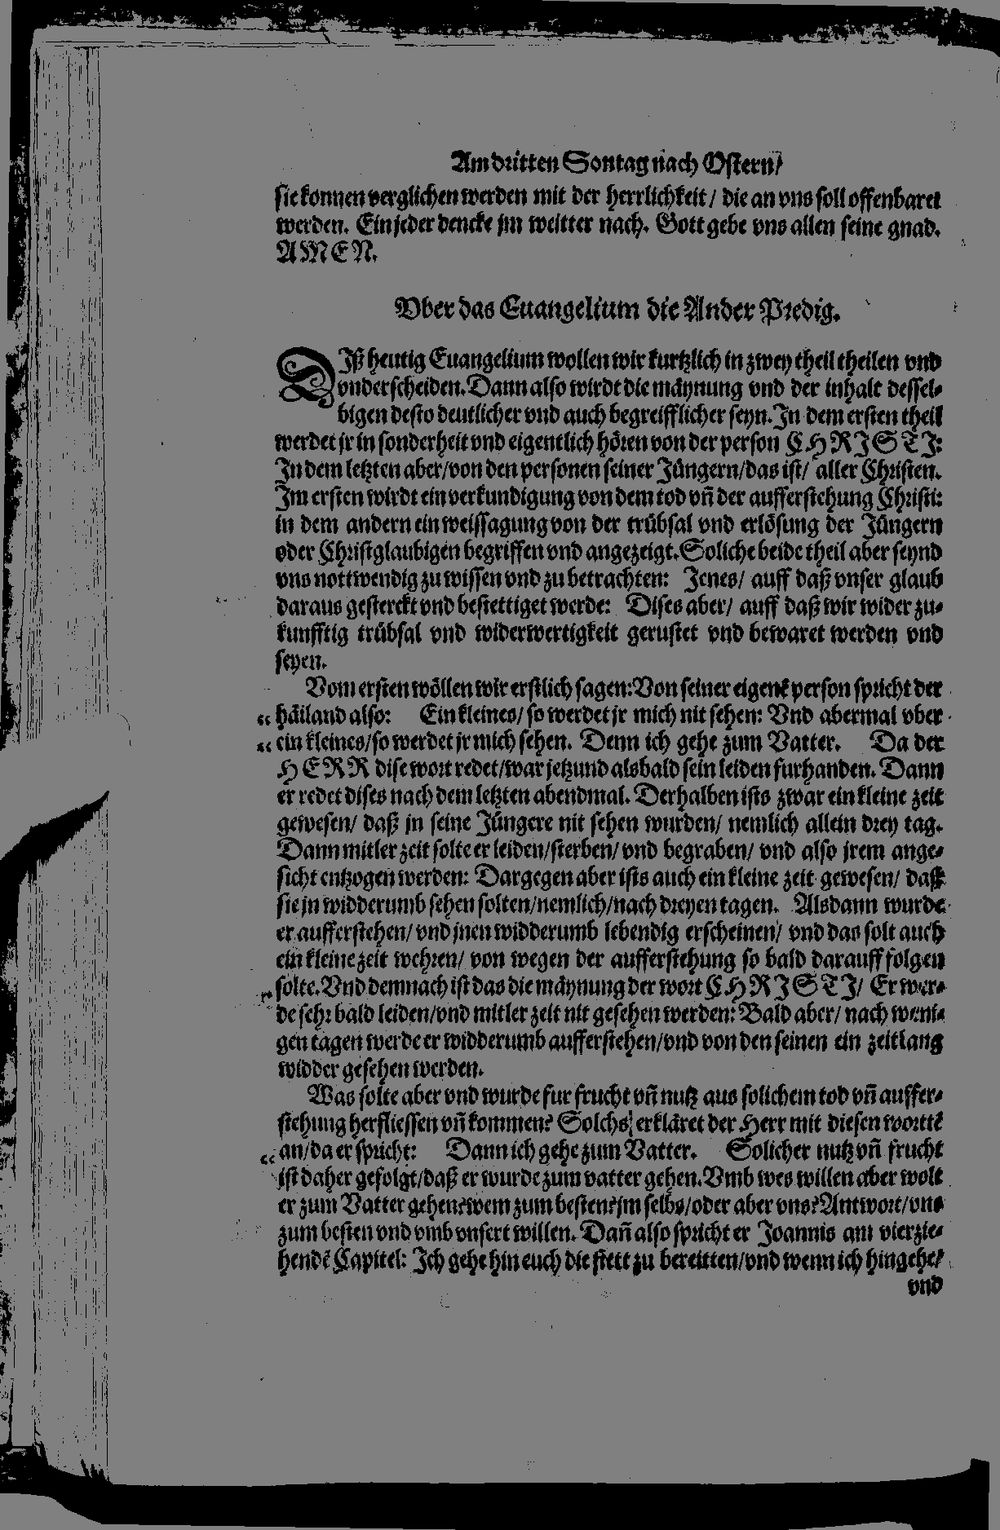 Am dritten Sontag nach Ostern/
sie konnen verglichen werden mit der herrlichkeit / die an vns soll offenbaret
werden. Ein jeder dencke jm weitter nach. Gott gebe vns allen seine gnad.
AMEN.
Vber das Euangelium die Ander Predig.
DIß heutig Euangelium wollen wir kurtzlich in zwey theil theilen vnd
vnderscheiden. Dann also wirdt die mäynung vnd der inhalt dessel-
bigen desto deutlicher vnd auch begreifflicher seyn. In dem ersten theil
werdet jr in sonderheit vnd eigentlich hören von der person CHRISTI:
In dem letzten aber/von den personen seiner Jüngern/das ist/ aller Christen.
Im ersten wirdt ein verkundigung von dem tod vñ der aufferstehung Christi:
in dem andern ein weissagung von der trübsal vnd erlösung der Jüngern
oder Christglaubigen begriffen vnd angezeigt. Soliche beide theil aber seynd
vns nottwendig zu wissen vnd zu betrachten: Jenes/ auff daß vnser glaub
daraus gesterckt vnd bestettiget werde: Dises aber/ auff daß wir wider zu-
kunfftig trübsal vnd widerwertigkeit gerustet vnd bewaret werden vnd
seyen.
Vom ersten wöllen wir erstlich sagen: Von seiner eigenē person spricht der
„ häiland also: Ein kleines/ so werdet jr mich nit sehen: Vnd abermal vber
„ ein kleines/so werdet jr mich sehen. Denn ich gehe zum Vatter. Da der
HERR dise wort redet/war jetzund alsbald sein leiden furhanden. Dann
er redet dises nach dem letzten abendmal. Derhalben ists zwar ein kleine zeit
gewesen/ daß jn seine Jüngere nit sehen wurden/ nemlich allein drey tag.
Dann mitler zeit solte er leiden/sterben/ vnd begraben/ vnd also jrem ange-
sicht entzogen werden: Dargegen aber ists auch ein kleine zeit gewesen/ daß
sie jn widderumb sehen solten/nemlich/nach dreyen tagen. Alsdann wurde
er aufferstehen/ vnd jnen widderumb lebendig erscheinen/ vnd das solt auch
ein kleine zeit wehren/ von wegen der aufferstehung so bald darauff folgen
solte. Vnd demnach ist das die mäynung der wort CHRISTI/ Er wer-
de sehr bald leiden/vnd mitler zeit nit gesehen werden: Bald aber/ nach weni-
gen tagen werde er widderumb aufferstehen/vnd von den seinen ein zeitlang
widder gesehen werden.
Was solte aber vnd wurde fur frucht vñ nutz aus solichem tod vñ auffer-
stehung herfliessen vñ kommen? Solchs erkläret der Herr mit diesen worttē
„ an/da er spricht: Dann ich gehe zum Vatter. Solicher nutz vñ frucht
ist daher gefolgt/daß er wurde zum vatter gehen. Vmb wes willen aber wolt
er zum Vatter gehen?wem zum besten?jm selbs/oder aber vns?Antwort/vns
zum besten vnd vmb vnsert willen. Dañ also spricht er Joannis am vierzie-
hendē Capitel: Ich gehe hin euch die stett zu bereitten/vnd wenn ich hingehe/
vnd